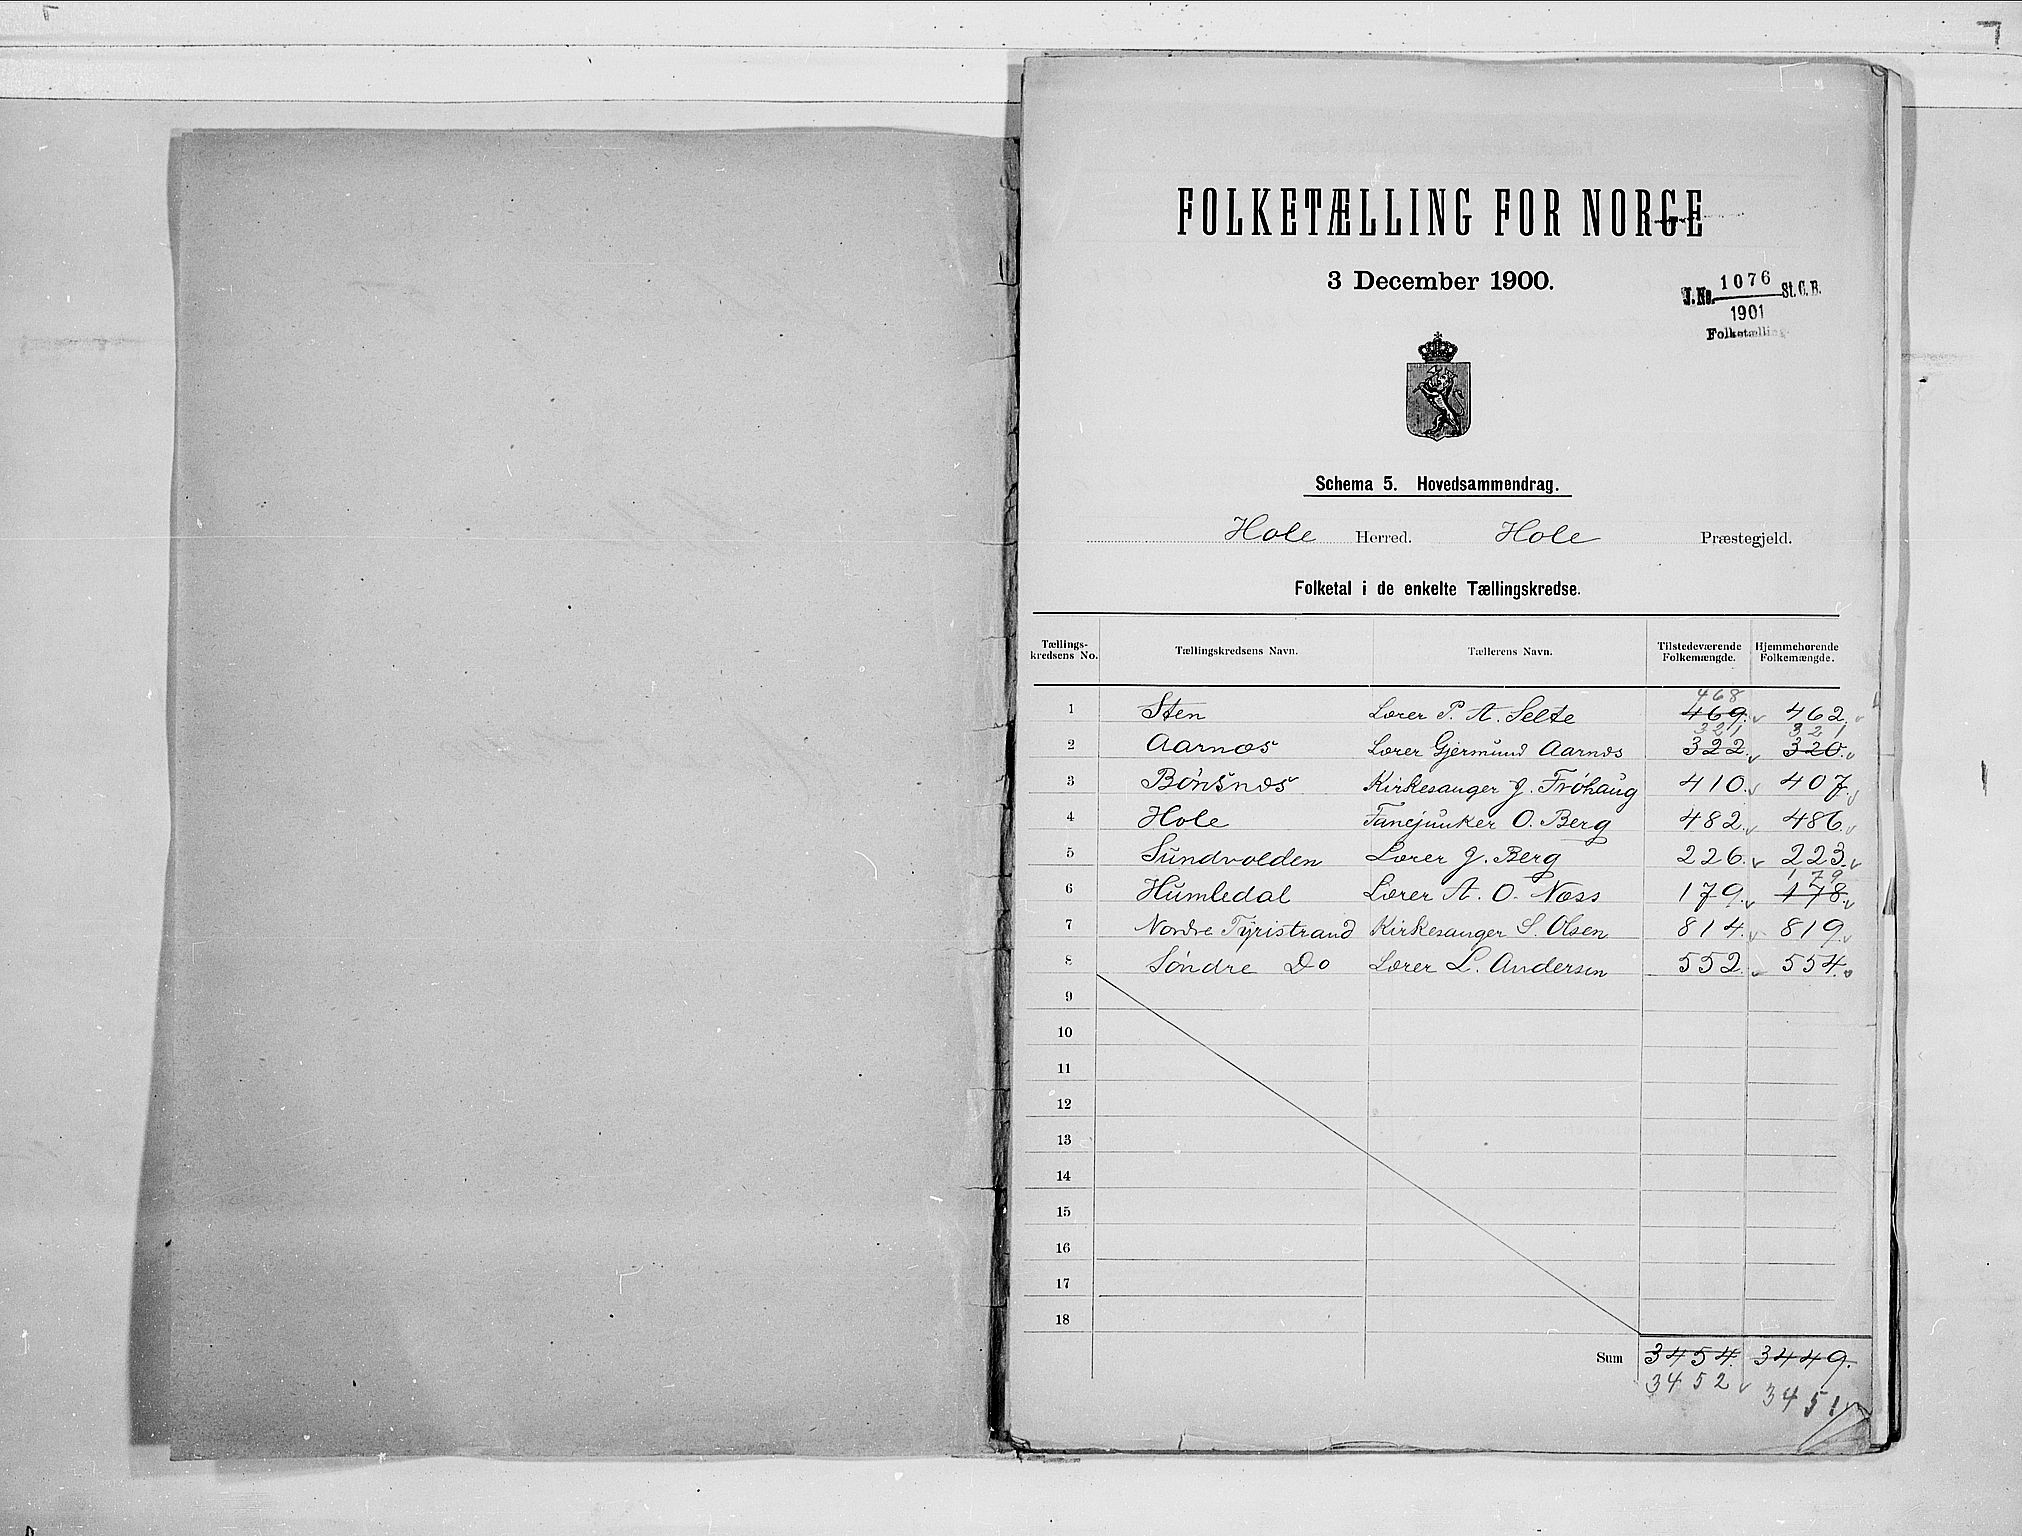 FOLKETÆLLING FOR NORGE
3 December 1900.
J.No. 1076 St. C. B.
1901
Folketælling
Schema 5. Hovedsammendrag.
Hole Herred. Hole Præstegjeld.
Folketal i de enkelte Tællingskredse.
Tællings-kredsens No. Tællingskredsens Navn. Tællerens Navn. Tilstedeværende Folkemængde. Hjemmehørende Folkemængde.
468
1 Sten Lærer P. A. Selte 469. 462.
321 321
2 Aarnæs Lærer Gjermund Aarnæs 322. 320.
3 Bönsnæs Kirkesanger J. Fröhaug 410. 407.
4 Hole Fanejunker O. Berg 482. 486.
5 Sundvolden Lærer J. Berg 226. 223.
179
6 Humledal Lærer A. O. Næss 179. 178.
7 Nordre Tyristrand Kirkesanger S. Olsen 814. 819.
8 Söndre Do Lærer L. Andersen 552. 554.
9
10
11
12
13
14
15
16
17
18
Sum 3454. 3449.
3452 3451